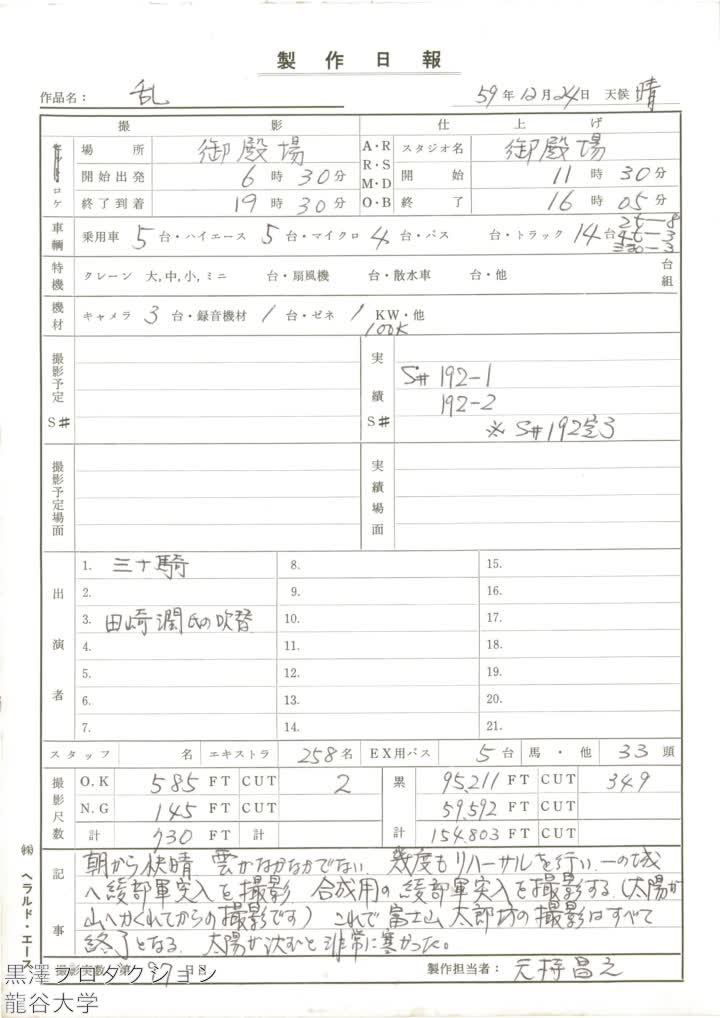 製作日報
作品名： 乱 59年12月24日 天候 晴
撮影 仕上げ
ロケ 場所 御殿場 A・R R・S M・D O・B スタジオ名 御殿場
開始出発 6時30分 開始 11時30分
終了到着 19時30分 終了 16時05分
車輌 乗用車 5台・ハイエース 5台・マイクロ 4台・バス 台・トラック 14台 2t—8 4t—3
特機 クレーン 大,中,小,ミニ 台・扇風機 台・散水車 台・他 台組
機材 キャメラ 3台・録音機材 1台・ゼネ 1 KW・他
100K
撮影予定 S# 実績 S# S# 192-1
192-2
※ S# 192定3
撮影予定場面 実績場面
出演者
1. 三十騎 8. 15.
2. 9. 16.
3. 田崎潤氏の吹替 10. 17.
4. 11. 18.
5. 12. 19.
6. 13. 20.
7. 14. 21.
スタッフ 名 エキストラ 258名 EX用バス 5台 馬・他 33頭
撮影尺数 O.K 585 FT CUT 2 累計 95,211 FT CUT 349
N.G 145 FT CUT 59,592 FT CUT
計 730 FT 計 154,803 FT CUT
記事
朝から快晴 雲がなかなかでない 幾度もリハーサルを行い、一の城
へ綾部軍突入を撮影 合成用の綾部軍突入を撮影する（太陽が
山へかくれてからの撮影です） これで富士山太郎坊の撮影はすべて
終了となる 太陽が沈むと非常に寒かった。
撮影実数 第 日目 製作担当者：
㈱ヘラルド・エース
黒澤プロダクション
龍谷大学